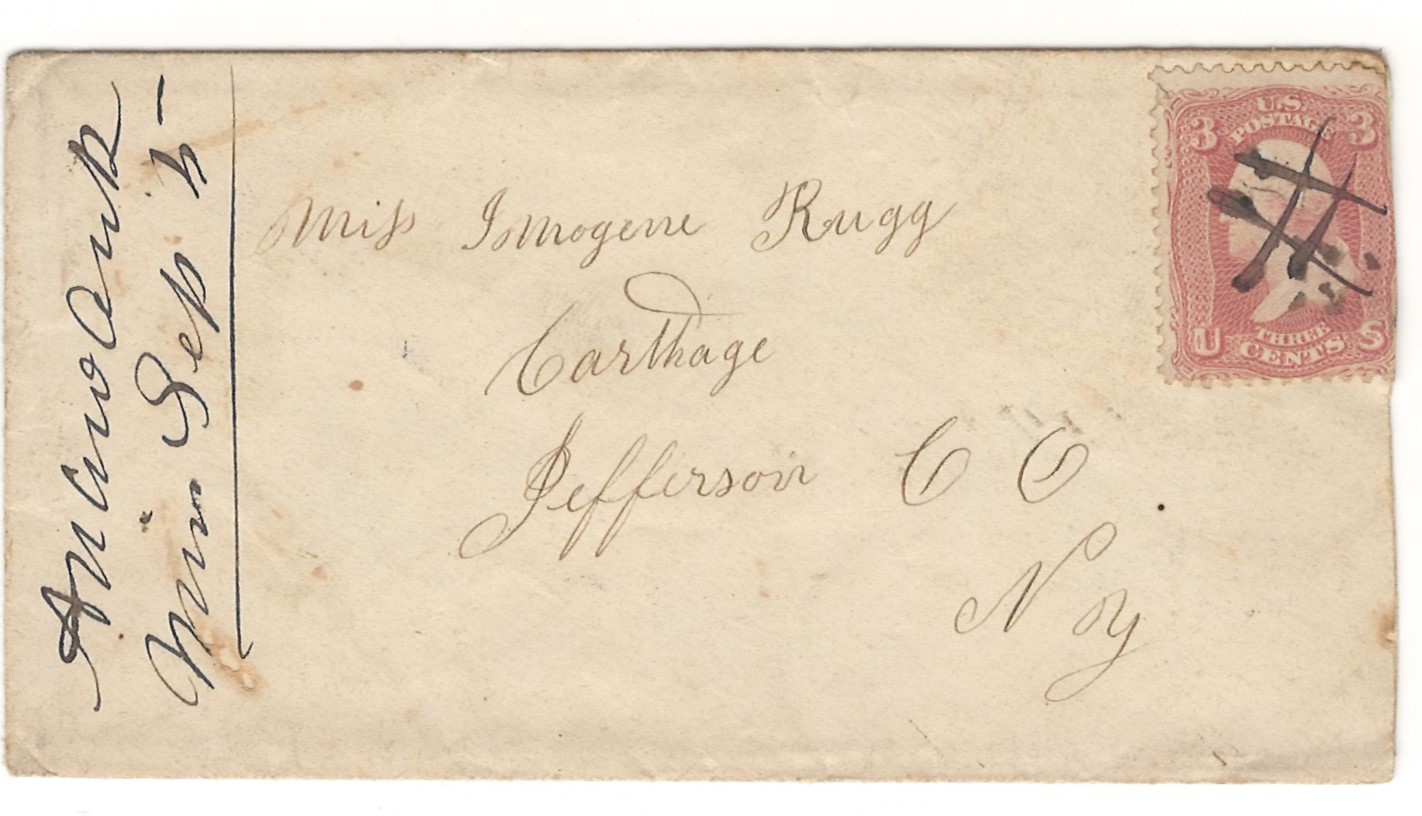 Min Sep 5 -
Miss Imogene Rugg
Carthage
Jefferson CO
N y
U.S.
3 POSTAGE 3
THREE
U CENTS S